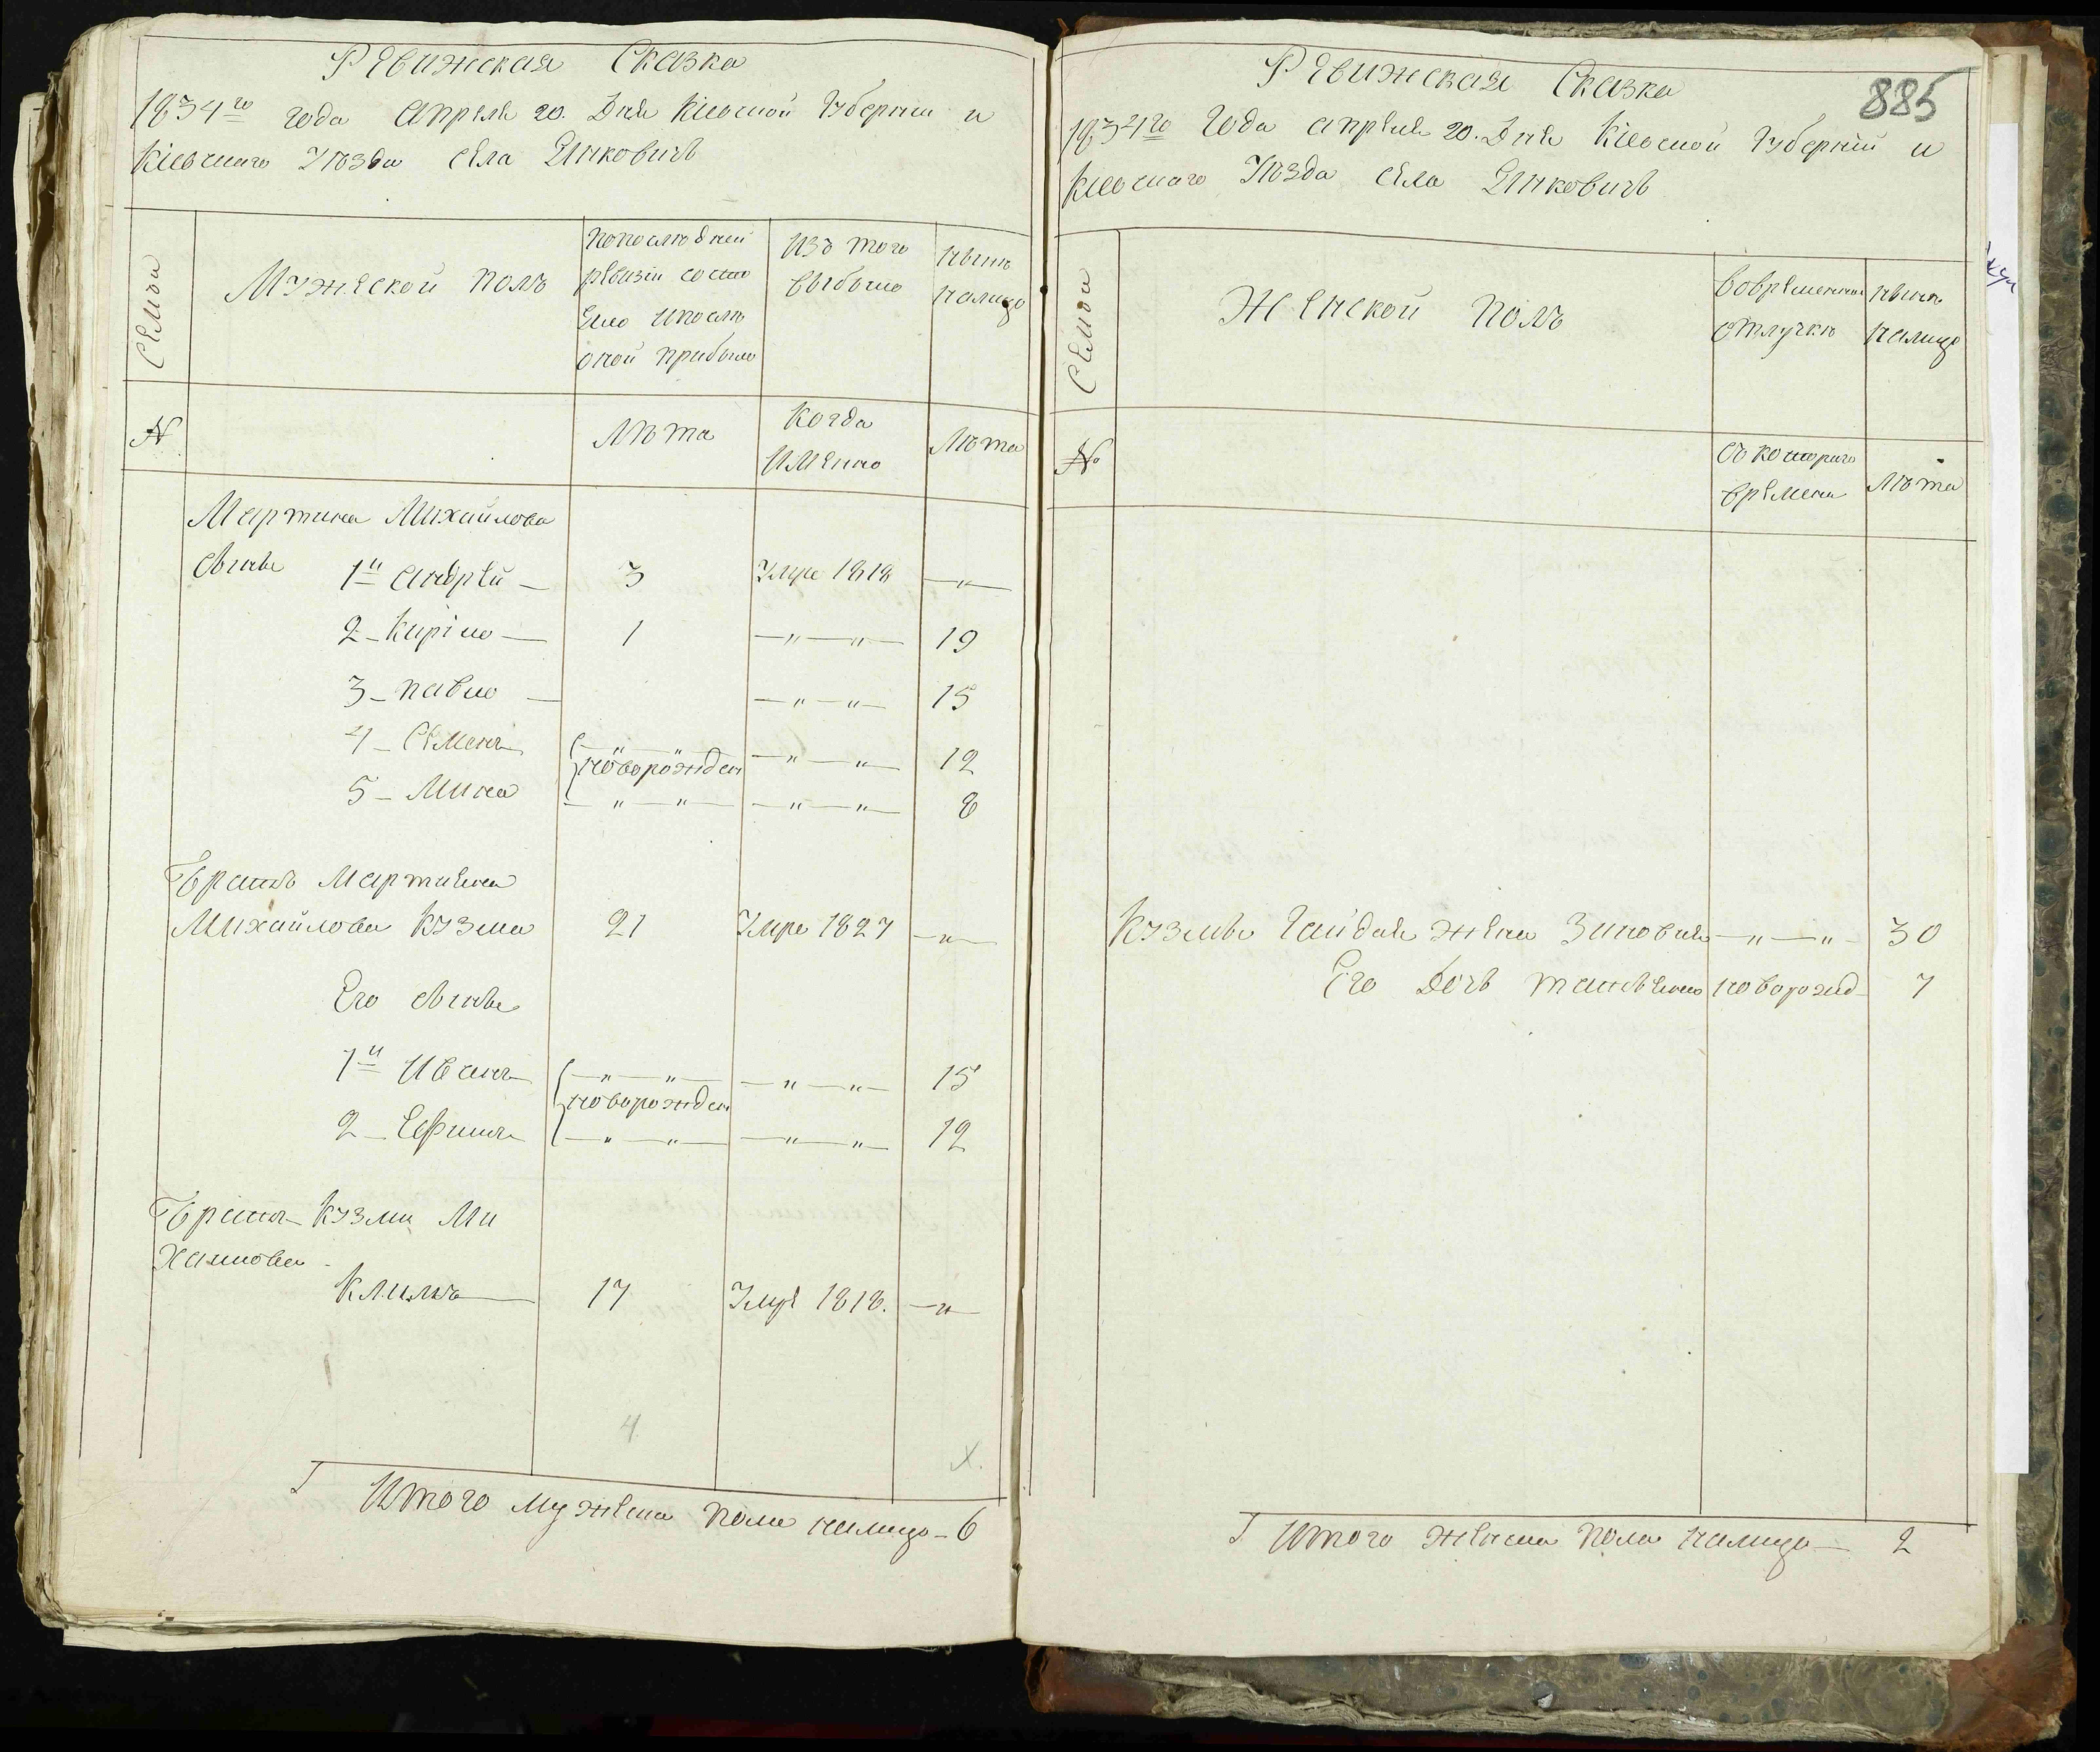 Ревижская Сказка
1834го года апреля 20. Дня Кіевской Губерніи и
Кіевскаго Уѣзда села Янковичъ
Семьи
Мужеской полъ
попослѣдней
ревизіи состо
яло ипослѣ
оной прибыло
Изъ того
выбыло
нынѣ
налицо
№
Лѣта
Когда
имянно
Лѣта
Мартина Михайлова
сынъве 1й андрей — 3 Умре 1818 — „ —
2 – Кирило — 1 — „ — „ — 19
3 – павло — — „ — „ — 15
4 – Семенъ — „ — „ — — „ — „ — 12
новорожден
5 – Мина — „ — „ — — „ — „ — 8
Братъ Мартинна
Михайлова Кузма 21 Умре 1827 — „ —
Его сынъве
1й Иванъ — „ — „ — — „ — „ — 15
новорожден
2 – Ефимъ — „ — „ — — „ — „ — 12
Братъ Кузми Ми
хаилова
Климъ 17 Умре 1818. — „ —
4
х.
Итого мужеска пола налицо – 6
885
Ревижская Сказка
1834го Года апреля 20. Дня Кіевской Губерніи и
Кіевскаго Уѣзда села Янковичъ
Семьи
Женской полъ
Вовременной
отлучкѣ
нынѣ
налицо
№
Съ котораго
времени
Лѣта
Кузмы Гайдая жена Зиновия — „ — „ – 30
Его Дочь татьянна новорожд– 7
Итого женска пола налицо — 2